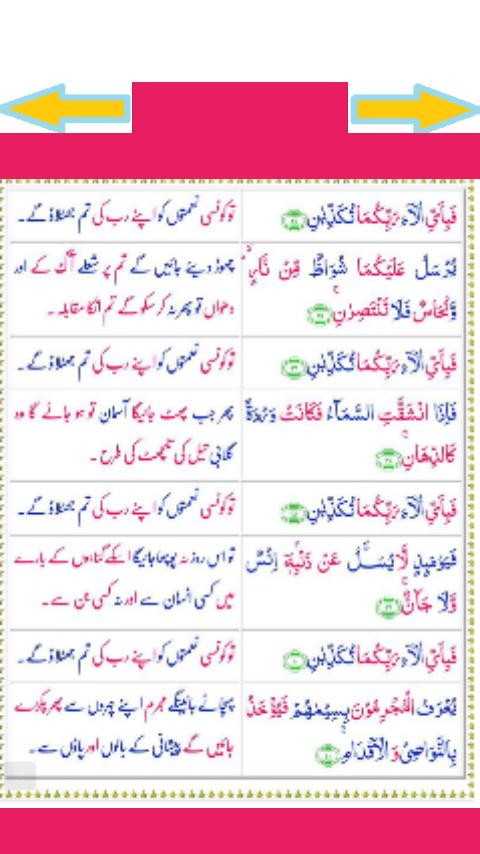 فَبِاَيِّ اٰلَآءِ رَبِّكُمَا تُكَذِّبٰنِ
توکونسی نعمتوں کو اپنے رب کی تم جھٹلاؤگے۔
يُرْسَلُ عَلَيْكُمَا شُوَاظٌ مِّنْ نَّارٍ
وَّنُحَاسٌ فَلَا تَنْتَصِرٰنِ
چھوڑ دیئے جائیں گے تم پر شعلے آگ کے اور
دھواں تو پھر نہ کر سکو گے تم انکا مقابلہ۔
فَبِاَيِّ اٰلَآءِ رَبِّكُمَا تُكَذِّبٰنِ
توکونسی نعمتوں کو اپنے رب کی تم جھٹلاؤگے۔
فَاِذَا انْشَقَّتِ السَّمَآءُ فَكَانَتْ وَرْدَةً
كَالدِّهَانِ
پھر جب پھٹ جائیگا آسمان تو ہو جائے گا وہ
گلابی تیل کی تلچھٹ کی طرح۔
فَبِاَيِّ اٰلَآءِ رَبِّكُمَا تُكَذِّبٰنِ
توکونسی نعمتوں کو اپنے رب کی تم جھٹلاؤگے۔
فَيَوْمَئِذٍ لَّا يُسْـَٔلُ عَنْ ذَنْۢبِهٖٓ اِنْسٌ
وَّلَا جَآنٌّ
تو اس روز نہ پوچھا جائیگا اسکے گناہوں کے بارے
میں کسی انسان سے اور نہ کسی جن سے۔
فَبِاَيِّ اٰلَآءِ رَبِّكُمَا تُكَذِّبٰنِ
توکونسی نعمتوں کو اپنے رب کی تم جھٹلاؤگے۔
يُعْرَفُ الْمُجْرِمُوْنَ بِسِيْمٰهُمْ فَيُؤْخَذُ
بِالنَّوَاصِيْ وَالْاَقْدَامِ
پہچانے جائینگے مجرم اپنے چہروں سے پھر پکڑے
جائیں گے پیشانی کے بالوں اور پاؤں سے۔